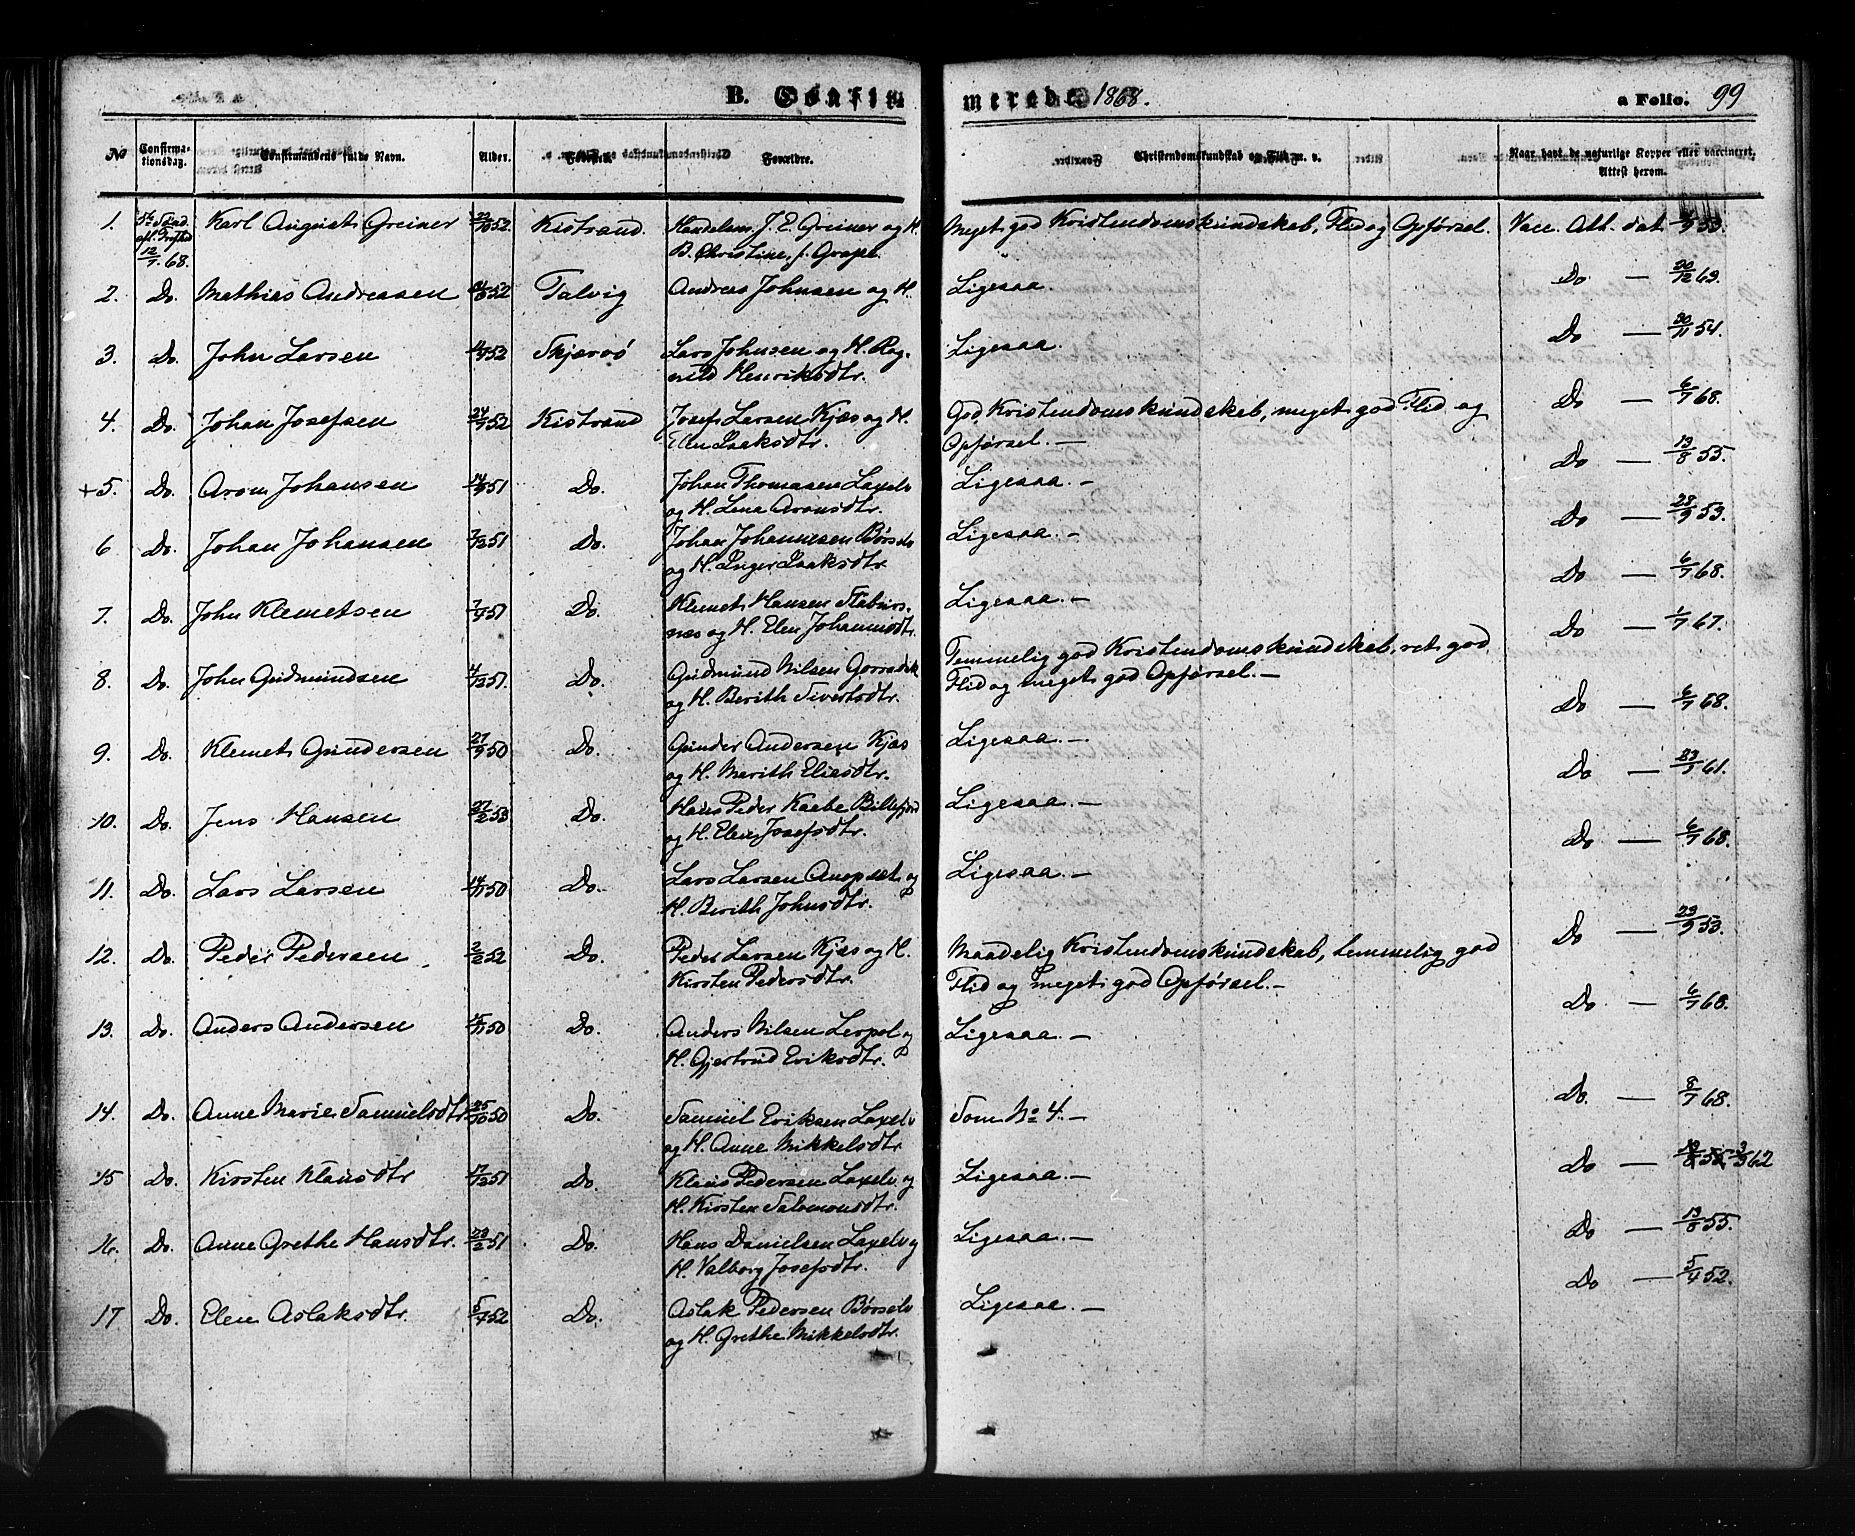 B. Confirmerede 1868. a Folio. 99
No Confirmationsdag. Confirmandens fulde Navn. Alder. Fødested. Forældre. Christendomskundskab og Flid m. v. Naar havt de naturlige Kopper eller vaccineret, Attest herom.
1. 12/7. 68. Karl August Greiner 22/10 52 Kistrand. Handelsm. J. E. Greiner og H. Meget god Kristendomskundskab, Flid og Opførsel. Vacc. Att. dat. 53.
B. Christine, f. Grape.
2. Do. Mathias Andreassen 52 Talvig Andreas Johnsen og H. Ligesaa. Do — 30/12 62.
3. Do. John Larsen 52 Skjærvø Lars Johnsen og H. Rag- Ligesaa. Do — 30/11 54.
nild Henriksdtr.
4. Do. Johan Josefsen 24/9 52 Kistrand Josef Larsen Kjæs og H. God Kristendomskundskab, meget god Flid og Do — 6/7 68.
Elen Isaksdtr. Opførsel. —
+5. Do. Aron Johansen 51 Do. Johan Thomasen Laxelv Ligesaa. — Do — 13/8 55.
og H. Lena Aronsdtr.
6 Do. Johan Johansen 7/12 51 Do. Johan Johannesen Børselv Ligesaa. — Do — 28/9 53.
og H. Inger Isaksdtr.
7. Do. John Klemetsen 51 Do. Klemet Hansen Staburs- Ligesaa. — Do — 6/7 68.
næs og H. Elen Johannisdtr.
8. Do. John Gudmundsen 4/12 51. Do. Gudmund Nilsen Temmelig god Kristendomskundskab, ret god Do — 1/7 67.
og H. Berith Sivertsdtr. Flid og meget god Opførsel. —
9. Do. Klemet Gundersen 27/9 50 Do. Gunder Andersen Kjæs Ligesaa. — Do — 6/7 68.
og H. Marith Eliesdtr.
10. Do. Jens Hansen 27/2 53 Do. Hans Peder Kaebe Billefjord Ligesaa. — Do — 23/7 61.
og H. Elen Josefsdtr.
11. Do. Lars Larsen 50 Do. Lars Larsen og Ligesaa. — Do — 6/7 68.
H. Berith Johnsdtr.
12. Do. Peder Pedersen 2/2 52 Do. Peder Larsen Kjæs og H. Maadelig Kristendomskundskab, temmelig god Do — 53.
Kirsten Pedersdtr. Flid og meget god Opførsel. —
13. Do. Anders Andersen 50 Do. Anders Nilsen Lerpol og Ligesaa. — Do — 6/7 68.
H. Gjertrud Eriksdtr.
14. Do. Anne Marie Samuelsdtr. 25/10 50 Do. Samuel Eriksen Laxelv Som No 4. — Do. — 8/7 68.
og H. Anne Mikkelsdtr.
15 Do. Kirsten Klausdtr 17/12 51 Do. Klaus Pedersen Laxelv og Ligesaa. — Do — 62
H. Kirsten Salomonsdtr.
16. Do. Anne Grethe Hansdtr. 51 Do. Hans Danielsen Laxelv og Ligesaa. — Do — 13/8 55.
H. Valborg Josefsdtr.
17 Do. Elen Aslaksdtr. 5/4 52 Do. Aslak Pedersen Børselv Ligesaa. — Do — 5/4 52.
og H. Grethe Mikkelsdtr.